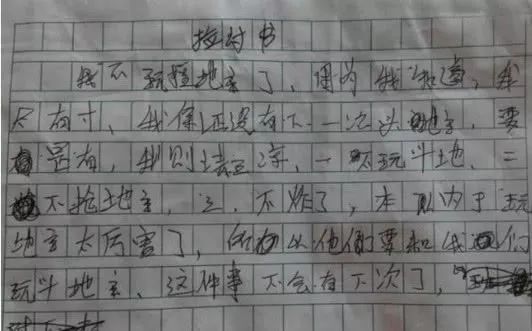 检讨书
我不玩抢地主了,因为我知道,我
只有寸,我保证没有下一次斗地主,要
是有,我则去三凉,一不玩斗地、二
不抢地主,三、不炸了,本以内于玩
地主太厉害了,所以他们要和我们
玩斗地主、这件事不会有下次了,